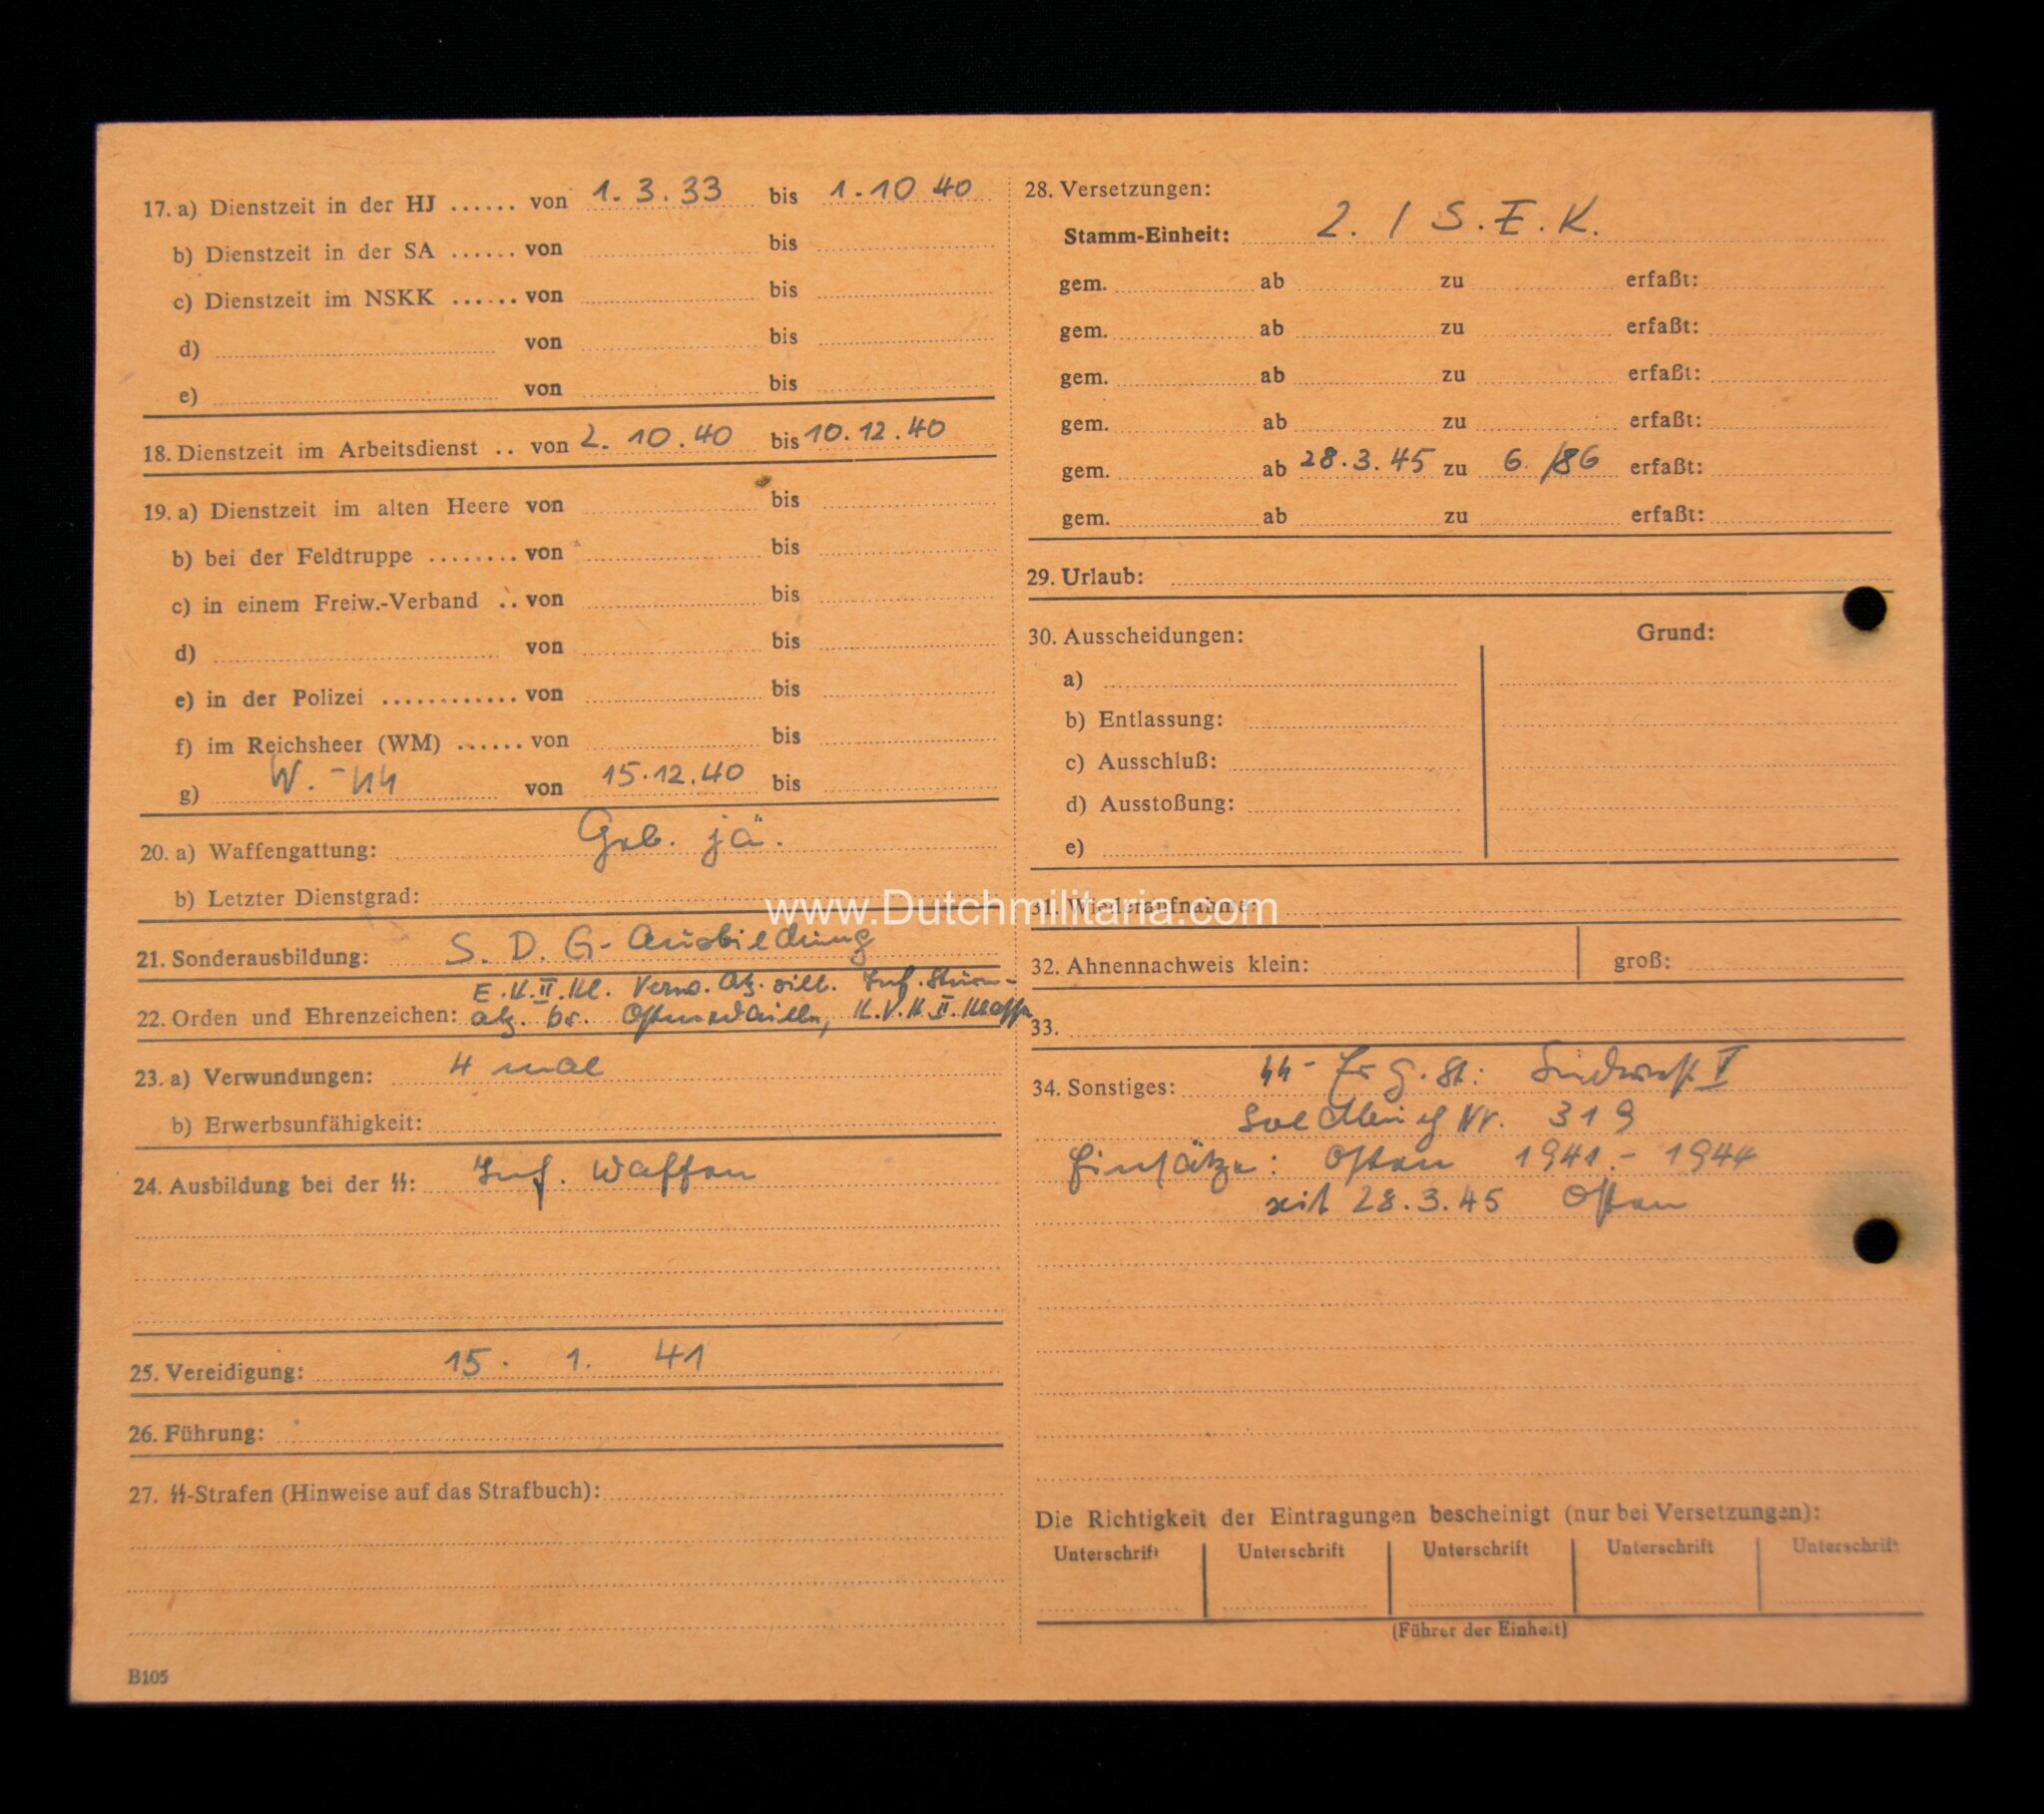 17. a) Dienstzeit in der HJ ...... von 1.3.33 bis 1.10 40
b) Dienstzeit in der SA ...... von bis
c) Dienstzeit im NSKK ...... von bis
d) von bis
e) von bis
18. Dienstzeit im Arbeitsdienst .. von 2.10.40 bis 10.12.40
19. a) Dienstzeit im alten Heere von bis
b) bei der Feldtruppe ........ von bis
c) in einem Freiw.-Verband .. von bis
d) von bis
e) in der Polizei ............ von bis
f) im Reichsheer (WM) ...... von bis
g) W.-ᛋᛋ von 15.12.40 bis
20. a) Waffengattung: Geb. jä.
b) Letzter Dienstgrad:
21. Sonderausbildung: S.D.G-Ausbildung
E.K.II.Kl. Verw. Abz. silb. Inf. Sturm-
22. Orden und Ehrenzeichen: abz. br. Ostmedaille, K.V.K II. Klasse
23. a) Verwundungen: 4 mal
b) Erwerbsunfähigkeit:
24. Ausbildung bei der ᛋᛋ: Inf. Waffen
25. Vereidigung: 15. 1. 41
26. Führung:
27. ᛋᛋ-Strafen (Hinweise auf das Strafbuch):
B105
28. Versetzungen:
Stamm-Einheit: 2. / S.E.K.
gem. ab zu erfaßt:
gem. ab zu erfaßt:
gem. ab zu erfaßt:
gem. ab zu erfaßt:
gem. ab 28.3.45 zu 6./86 erfaßt:
gem. ab zu erfaßt:
29. Urlaub:
30. Ausscheidungen: Grund:
a)
b) Entlassung:
c) Ausschluß:
d) Ausstoßung:
e)
31. Wiederaufnahme:
www.Dutchmilitaria.com
32. Ahnennachweis klein: groß:
33.
34. Sonstiges: ᛋᛋ-Erg.St: Südwest V
Soldbuch Nr. 319
Einsätze: Osten 1941.-1944
seit 28.3.45 Osten
Die Richtigkeit der Eintragungen bescheinigt (nur bei Versetzungen):
Unterschrift Unterschrift Unterschrift Unterschrift Unterschrift
(Führer der Einheit)